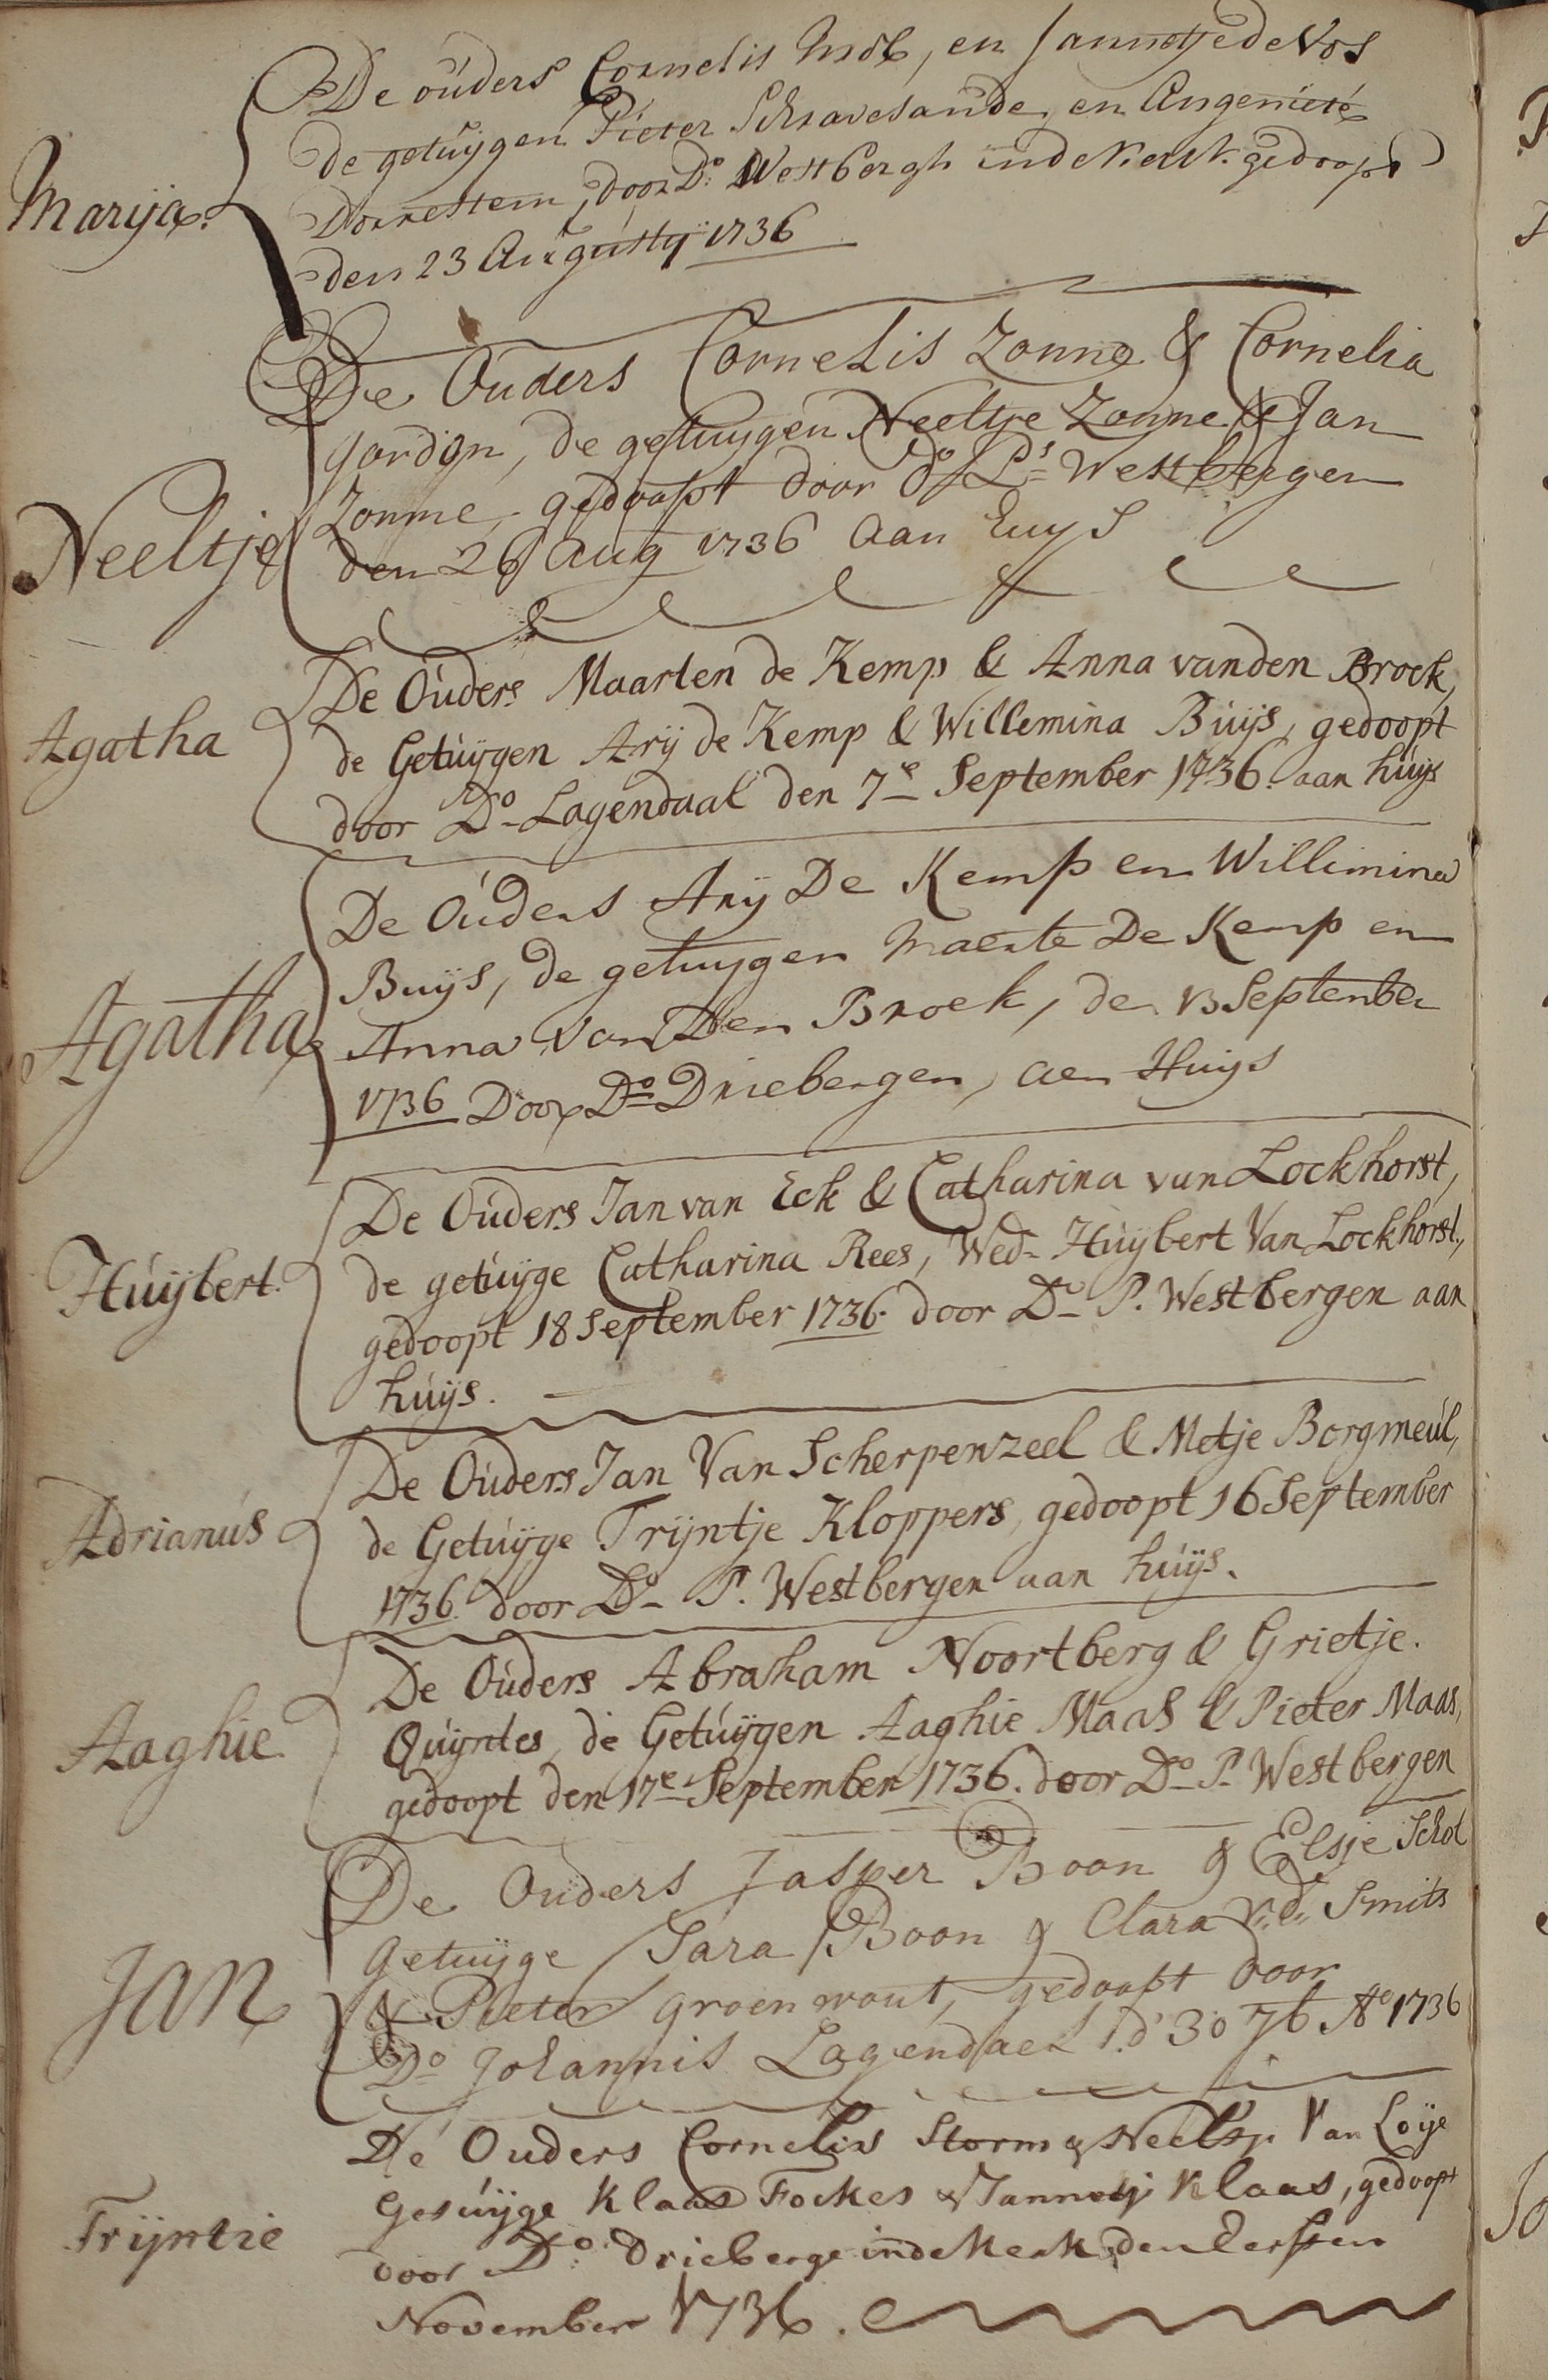 Marija.
De ouders Cornelis Mol, en Jannetje de Vos
de getuijgen Pieter Schravesande, en Angenieté
Dorrestein, door Do: Westbergh inde Kerk gedoopt
den 23 Augusty 1736
Neeltje
De Ouders Cornelis Zonne & Cornelia
Jordyn, de getuygen Neeltje Zonne & Jan
Zonne, gedoopt door do Ps Westbergen
den 26 Aug 1736 aan Euys
Agatha
De Ouders Maarten de Kemp & Anna vanden Broek,
de Getuijgen Arij de Kemp & Willemina Buijs, gedoopt
door Do Lagendaal den 7e September 1736. aan huijs
Agatha
De Ouders Arij De Kemp en Willimina
Buijs, de getuygen Maerte De Kemp en
Anna Van Den Broek, den 13 September
1736 Door Do Driebergen, aen Huijs
Huijbert.
De Ouders Jan van Eck & Catharina van Lockhorst,
de getuijge Catharina Rees, Wed. Huijbert Van Lockhorst,
gedoopt 18 September 1736. door Do P. Westbergen aan
huijs.
Adrianus
De Ouders Jan Van Scherpenzeel & Metje Borgmeul,
de Getuijge Trijntje Kloppers, gedoopt 16 September
1736. door Do P. Westbergen aan huijs.
Aaghie
De Ouders Abraham Noortberg & Grietje.
Quijntes, de Getuijgen Aaghie Maas & Pieter Maas,
gedoopt den 17e September 1736. door Do P. Westbergen
Jan
De Ouders Jasper Boon & Elsje Schol
Getuijge Sara Boon & Clara v: d: Smits
& Pieter Groenwout, gedoopt door
Do Johannis Lagendael d' 30 7b Ao 1736
Trijntie
De Ouders Cornelis Storm & Neeltje Van Loije
Getuijge Klaas Fockes & Jannetj Klaas, gedoopt
door Do: Drieberge inde Kerk den Eersten
November 1736.